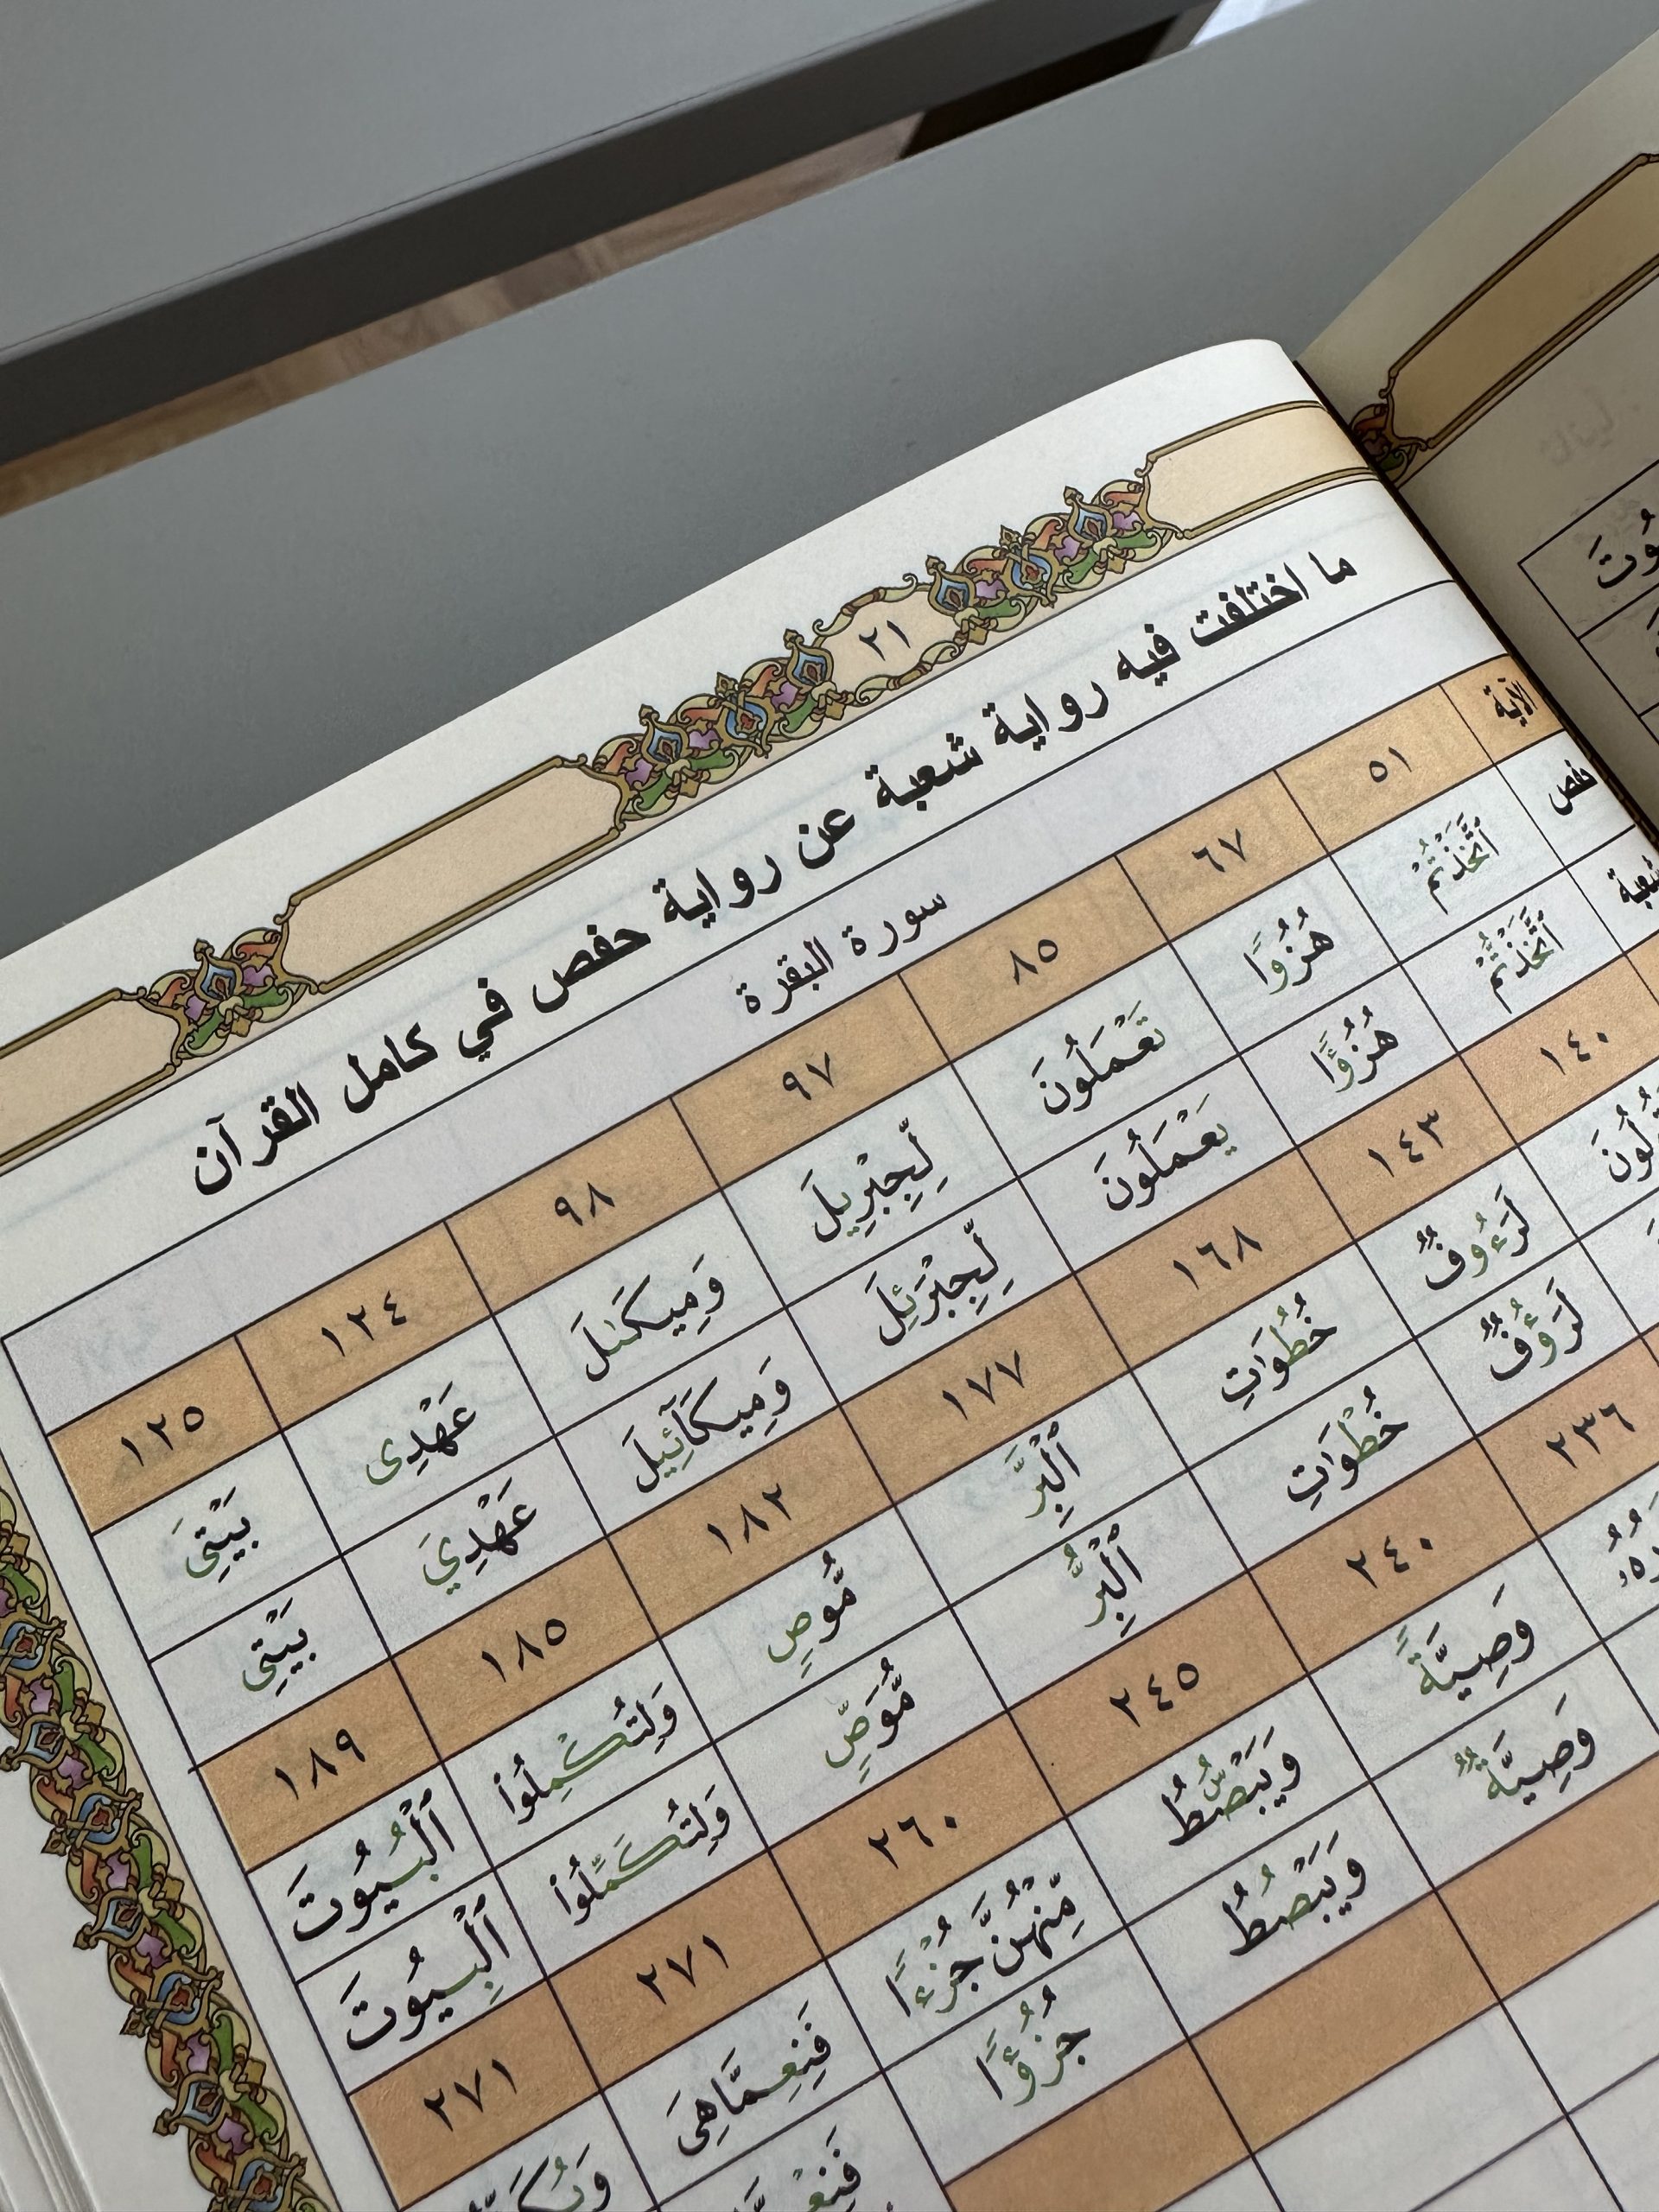 ٢١
ما اختلفت فيه رواية شعبة عن رواية حفص في كامل القرآن
سورة البقرة
الآية ٥١ ٦٧ ٨٥ ٩٧ ٩٨ ١٢٤ ١٢٥
حفص ٱتَّخَذتُّمُ هُزُوًا تَعْمَلُونَ لِّجِبْرِيلَ وَمِيكَىٰلَ عَهْدِى بَيْتِىَ
شعبة ٱتَّخَذتُّمُ هُزُؤًا يَعْمَلُونَ لِّجِبْرَئِلَ وَمِيكَآئِيلَ عَهْدِيَ بَيْتِى
١٤٠ ١٤٣ ١٦٨ ١٧٧ ١٨٢ ١٨٥ ١٨٩
لَرَءُوفٌ خُطُوَاتِ ٱلْبِرَّ مُّوصٍ وَلِتُكْمِلُوا۟ ٱلْبُيُوتَ
لَرَؤُفٌ خُطْوَاتِ ٱلْبِرُّ مُّوَصٍّ وَلِتُكَمِّلُوا۟ ٱلْبِيُوتَ
٢٣٦ ٢٤٠ ٢٤٥ ٢٦٠ ٢٧١ ٢٧١
وَصِيَّةً وَيَبْصُۜطُ مِّنْهُنَّ جُزْءًا فَنِعِمَّا هِىَ
وَصِيَّةٌ وَيَبْصُطُ جُزُؤًا